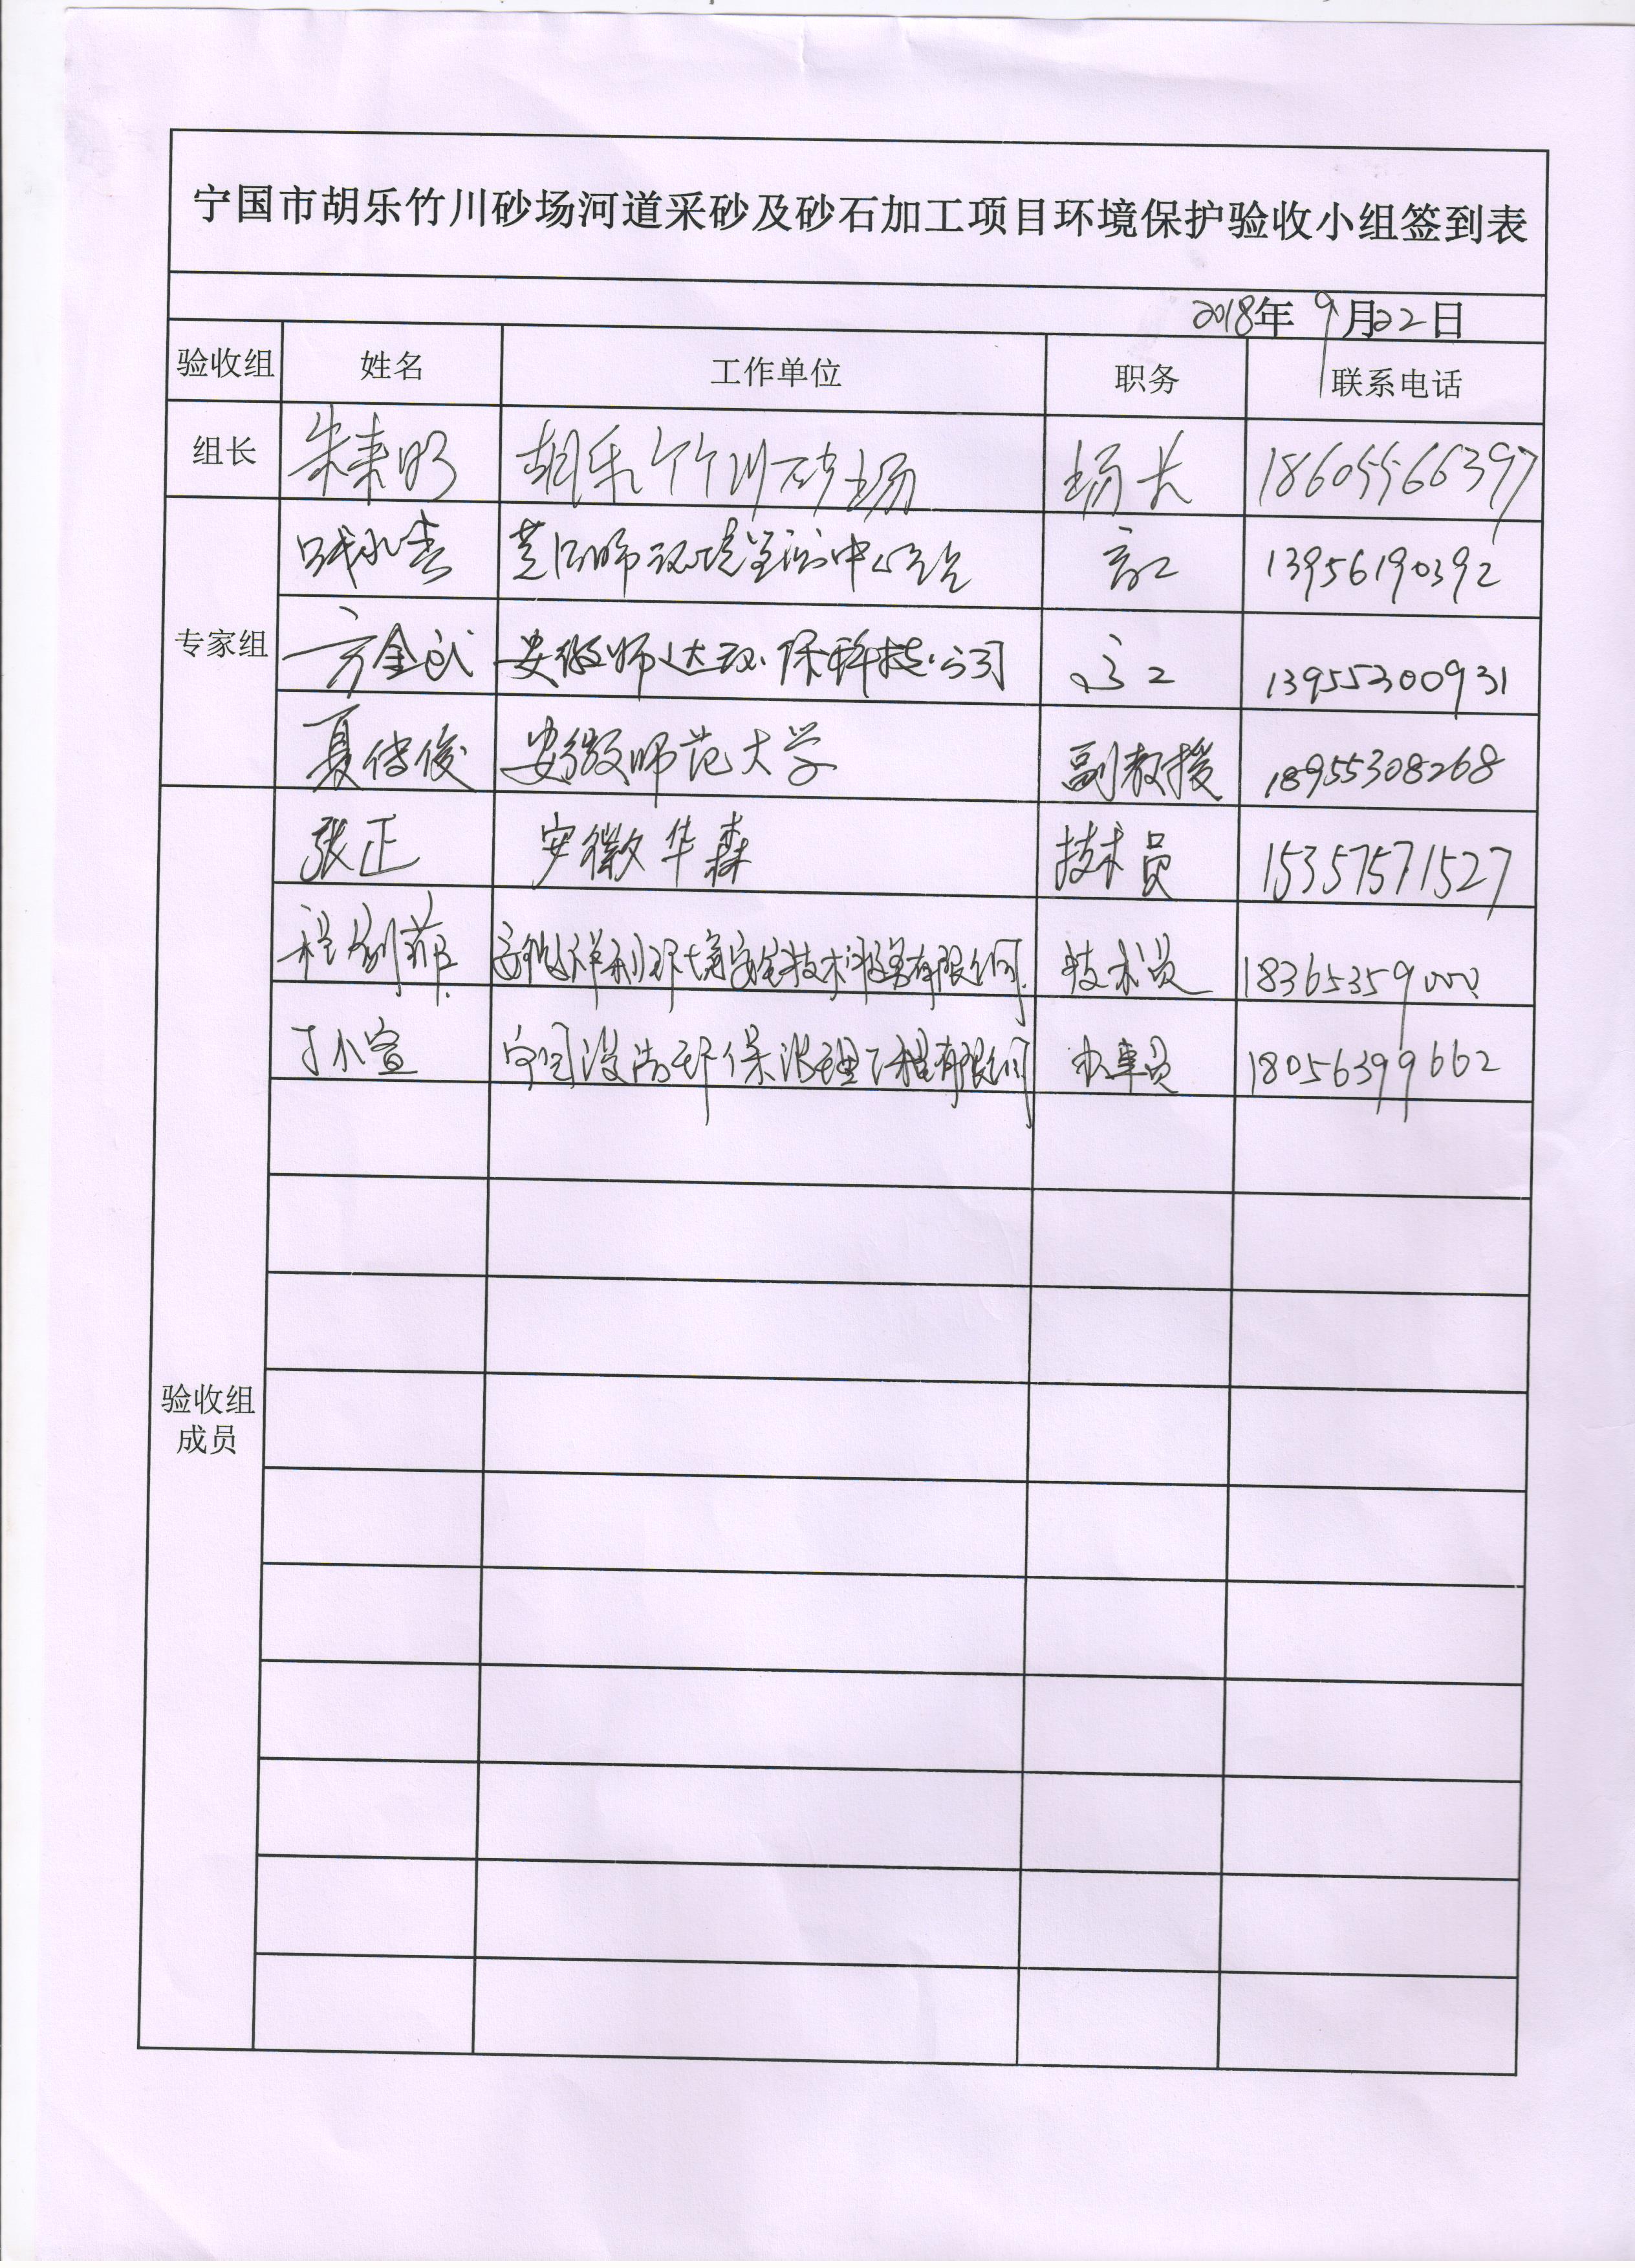 宁国市胡乐竹川砂场河道采砂及砂石加工项目环境保护验收小组签到表
2018年9月22日
验收组 姓名 工作单位 职务 联系电话
组长 朱来明 胡乐竹川砂场 场长 18605566397
高工 13956190392
专家组 方金武 安徽师达环保科技公司 高工 13955300931
夏传俊 安徽师范大学 副教授 18955308268
张正 安徽华森 技术员 15357571527
程 安徽祥利环境安全技术 有限公司 技术员 18365359000
丁小宣 宁国 环保 工程有限公司 办事员 18056399662
验收组
成员